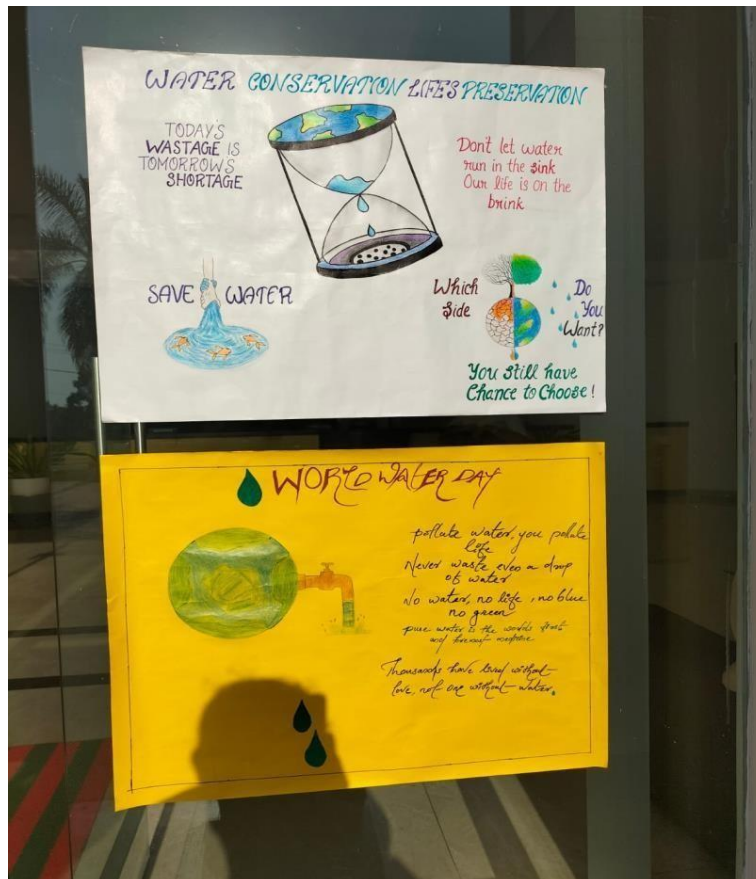 WATER CONSERVATION LIFE'S PRESERVATION
TODAY'S
WASTAGE IS
TOMORROW'S
SHORTAGE
Don't let water
run in the sink
Our life is on the
brink
SAVE WATER
Which Do
Side You
Want?
You still have
Chance to Choose!
WORLD WATER DAY
pollute water, you pollute
life
Never waste even a drop
of water
No water, no life, no blue
no green
pure water is the world's first
and foremost medicine
Thousands have lived without
love, not one without water.